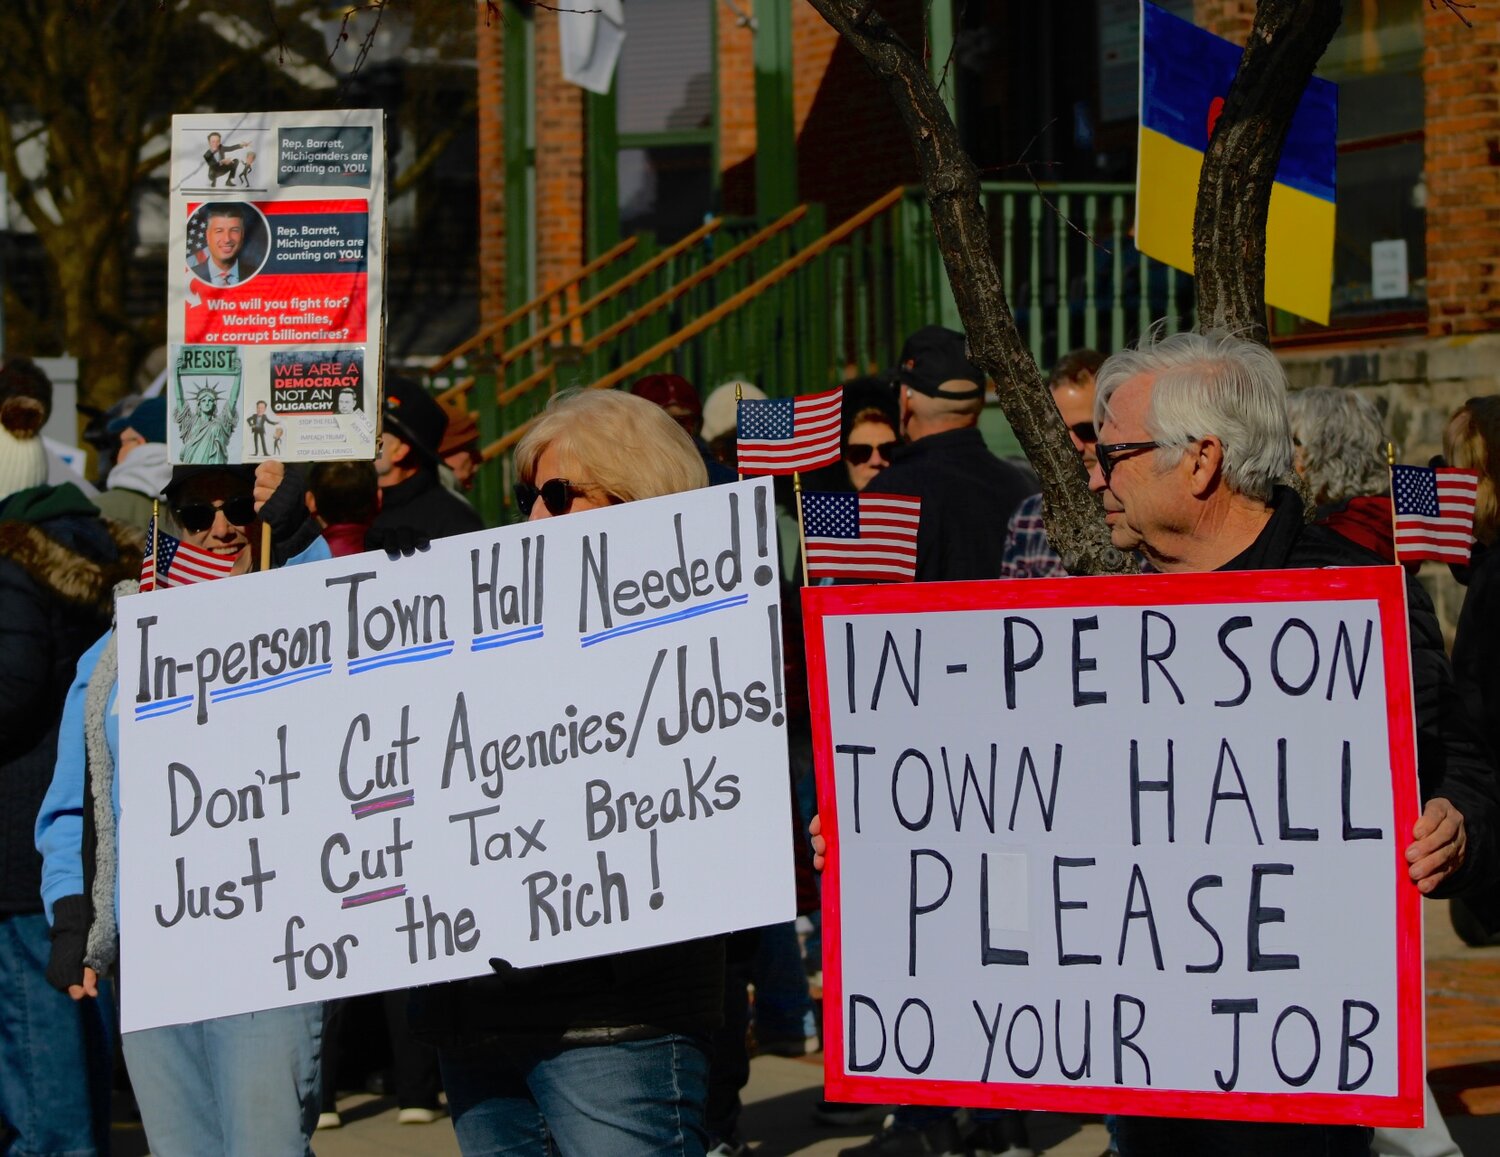 Rep. Barrett,
Michiganders are
counting on YOU.
Rep. Barrett,
Michiganders are
counting on YOU.
Who will you fight for?
Working families,
or corrupt billionaires?
RESIST
WE ARE A
DEMOCRACY
NOT AN
OLIGARCHY
IMPEACH TRUMP
STOP ILLEGAL FIRINGS
In-person Town Hall Needed!
Don't Cut Agencies/Jobs!
Just Cut Tax Breaks
for the Rich!
IN-PERSON
TOWN HALL
PLEASE
DO YOUR JOB